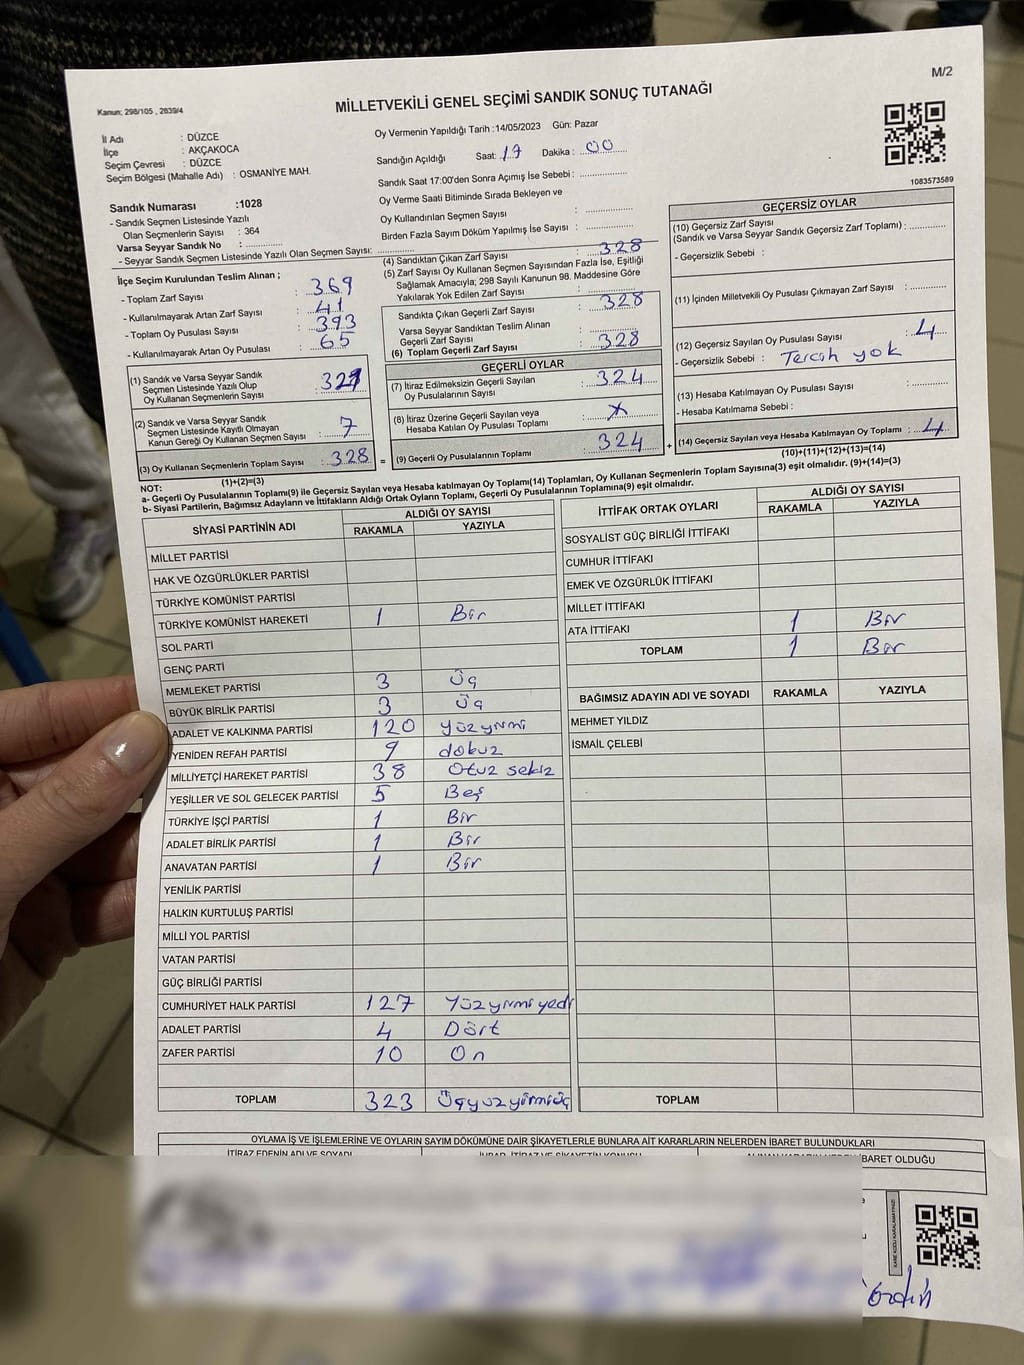 M/2
Kanun; 298/105 , 2839/4
MİLLETVEKİLİ GENEL SEÇİMİ SANDIK SONUÇ TUTANAĞI
İl Adı : DÜZCE
İlçe : AKÇAKOCA
Seçim Çevresi : DÜZCE
Seçim Bölgesi (Mahalle Adı) : OSMANİYE MAH.
Sandık Numarası :1028
- Sandık Seçmen Listesinde Yazılı
Olan Seçmenlerin Sayısı : 364
Varsa Seyyar Sandık No :
- Seyyar Sandık Seçmen Listesinde Yazılı Olan Seçmen Sayısı:
Oy Vermenin Yapıldığı Tarih :14/05/2023 Gün: Pazar
Sandığın Açıldığı Saat: 17 Dakika : 00
Sandık Saat 17:00'den Sonra Açımış İse Sebebi :
Oy Verme Saati Bitiminde Sırada Bekleyen ve
Oy Kullandırılan Seçmen Sayısı :
Birden Fazla Sayım Döküm Yapılmış İse Sayısı :
1083573589
İlçe Seçim Kurulundan Teslim Alınan ;
- Toplam Zarf Sayısı : 369
- Kullanılmayarak Artan Zarf Sayısı : 41
- Toplam Oy Pusulası Sayısı : 393
- Kullanılmayarak Artan Oy Pusulası : 65
(1) Sandık ve Varsa Seyyar Sandık
Seçmen Listesinde Yazılı Olup
Oy Kullanan Seçmenlerin Sayısı : 321
(2) Sandık ve Varsa Seyyar Sandık
Seçmen Listesinde Kayıtlı Olmayan
Kanun Gereği Oy Kullanan Seçmen Sayısı : 7
(3) Oy Kullanan Seçmenlerin Toplam Sayısı : 328
(1)+(2)=(3)
(4) Sandıktan Çıkan Zarf Sayısı : 328
(5) Zarf Sayısı Oy Kullanan Seçmen Sayısından Fazla İse, Eşitliği
Sağlamak Amacıyla; 298 Sayılı Kanunun 98. Maddesine Göre
Yakılarak Yok Edilen Zarf Sayısı :
Sandıkta Çıkan Geçerli Zarf Sayısı : 328
Varsa Seyyar Sandıktan Teslim Alınan
Geçerli Zarf Sayısı :
(6) Toplam Geçerli Zarf Sayısı : 328
GEÇERLİ OYLAR
(7) İtiraz Edilmeksizin Geçerli Sayılan
Oy Pusulalarının Sayısı : 324
(8) İtiraz Üzerine Geçerli Sayılan veya
Hesaba Katılan Oy Pusulası Toplamı :
= (9) Geçerli Oy Pusulalarının Toplamı : 324 +
GEÇERSİZ OYLAR
(10) Geçersiz Zarf Sayısı
(Sandık ve Varsa Seyyar Sandık Geçersiz Zarf Toplamı) :
- Geçersizlik Sebebi :
(11) İçinden Milletvekili Oy Pusulası Çıkmayan Zarf Sayısı :
(12) Geçersiz Sayılan Oy Pusulası Sayısı : 4
- Geçersizlik Sebebi : Tercih yok
(13) Hesaba Katılmayan Oy Pusulası Sayısı :
- Hesaba Katılmama Sebebi :
(14) Geçersiz Sayılan veya Hesaba Katılmayan Oy Toplamı : 4
(10)+(11)+(12)+(13)=(14)
NOT:
a- Geçerli Oy Pusulalarının Toplamı(9) ile Geçersiz Sayılan veya Hesaba katılmayan Oy Toplamı(14) Toplamları, Oy Kullanan Seçmenlerin Toplam Sayısına(3) eşit olmalıdır. (9)+(14)=(3)
b- Siyasi Partilerin, Bağımsız Adayların ve İttifakların Aldığı Ortak Oyların Toplamı, Geçerli Oy Pusulalarının Toplamına(9) eşit olmalıdır.
SİYASİ PARTİNİN ADI ALDIĞI OY SAYISI
RAKAMLA YAZIYLA
MİLLET PARTİSİ
HAK VE ÖZGÜRLÜKLER PARTİSİ
TÜRKİYE KOMÜNİST PARTİSİ
TÜRKİYE KOMÜNİST HAREKETİ 1 Bir
SOL PARTİ
GENÇ PARTİ
MEMLEKET PARTİSİ 3 Üç
BÜYÜK BİRLİK PARTİSİ 3 Üç
ADALET VE KALKINMA PARTİSİ 120 yüzyirmi
YENİDEN REFAH PARTİSİ 9 dokuz
MİLLİYETÇİ HAREKET PARTİSİ 38 Otuz sekiz
YEŞİLLER VE SOL GELECEK PARTİSİ 5 Beş
TÜRKİYE İŞÇİ PARTİSİ 1 Bir
ADALET BİRLİK PARTİSİ 1 Bir
ANAVATAN PARTİSİ 1 Bir
YENİLİK PARTİSİ
HALKIN KURTULUŞ PARTİSİ
MİLLİ YOL PARTİSİ
VATAN PARTİSİ
GÜÇ BİRLİĞİ PARTİSİ
CUMHURİYET HALK PARTİSİ 127 Yüzyirmiyedi
ADALET PARTİSİ 4 Dört
ZAFER PARTİSİ 10 On
TOPLAM 323 Üçyüzyirmiüç
İTTİFAK ORTAK OYLARI ALDIĞI OY SAYISI
RAKAMLA YAZIYLA
SOSYALİST GÜÇ BİRLİĞİ İTTİFAKI
CUMHUR İTTİFAKI
EMEK VE ÖZGÜRLÜK İTTİFAKI
MİLLET İTTİFAKI
ATA İTTİFAKI 1 Bir
TOPLAM 1 Bir
BAĞIMSIZ ADAYIN ADI VE SOYADI RAKAMLA YAZIYLA
MEHMET YILDIZ
İSMAİL ÇELEBİ
TOPLAM
OYLAMA İŞ VE İŞLEMLERİNE VE OYLARIN SAYIM DÖKÜMÜNE DAİR ŞİKAYETLERLE BUNLARA AİT KARARLARIN NELERDEN İBARET BULUNDUKLARI
İTİRAZ EDENİN ADI VE SOYADI
İBARET OLDUĞU